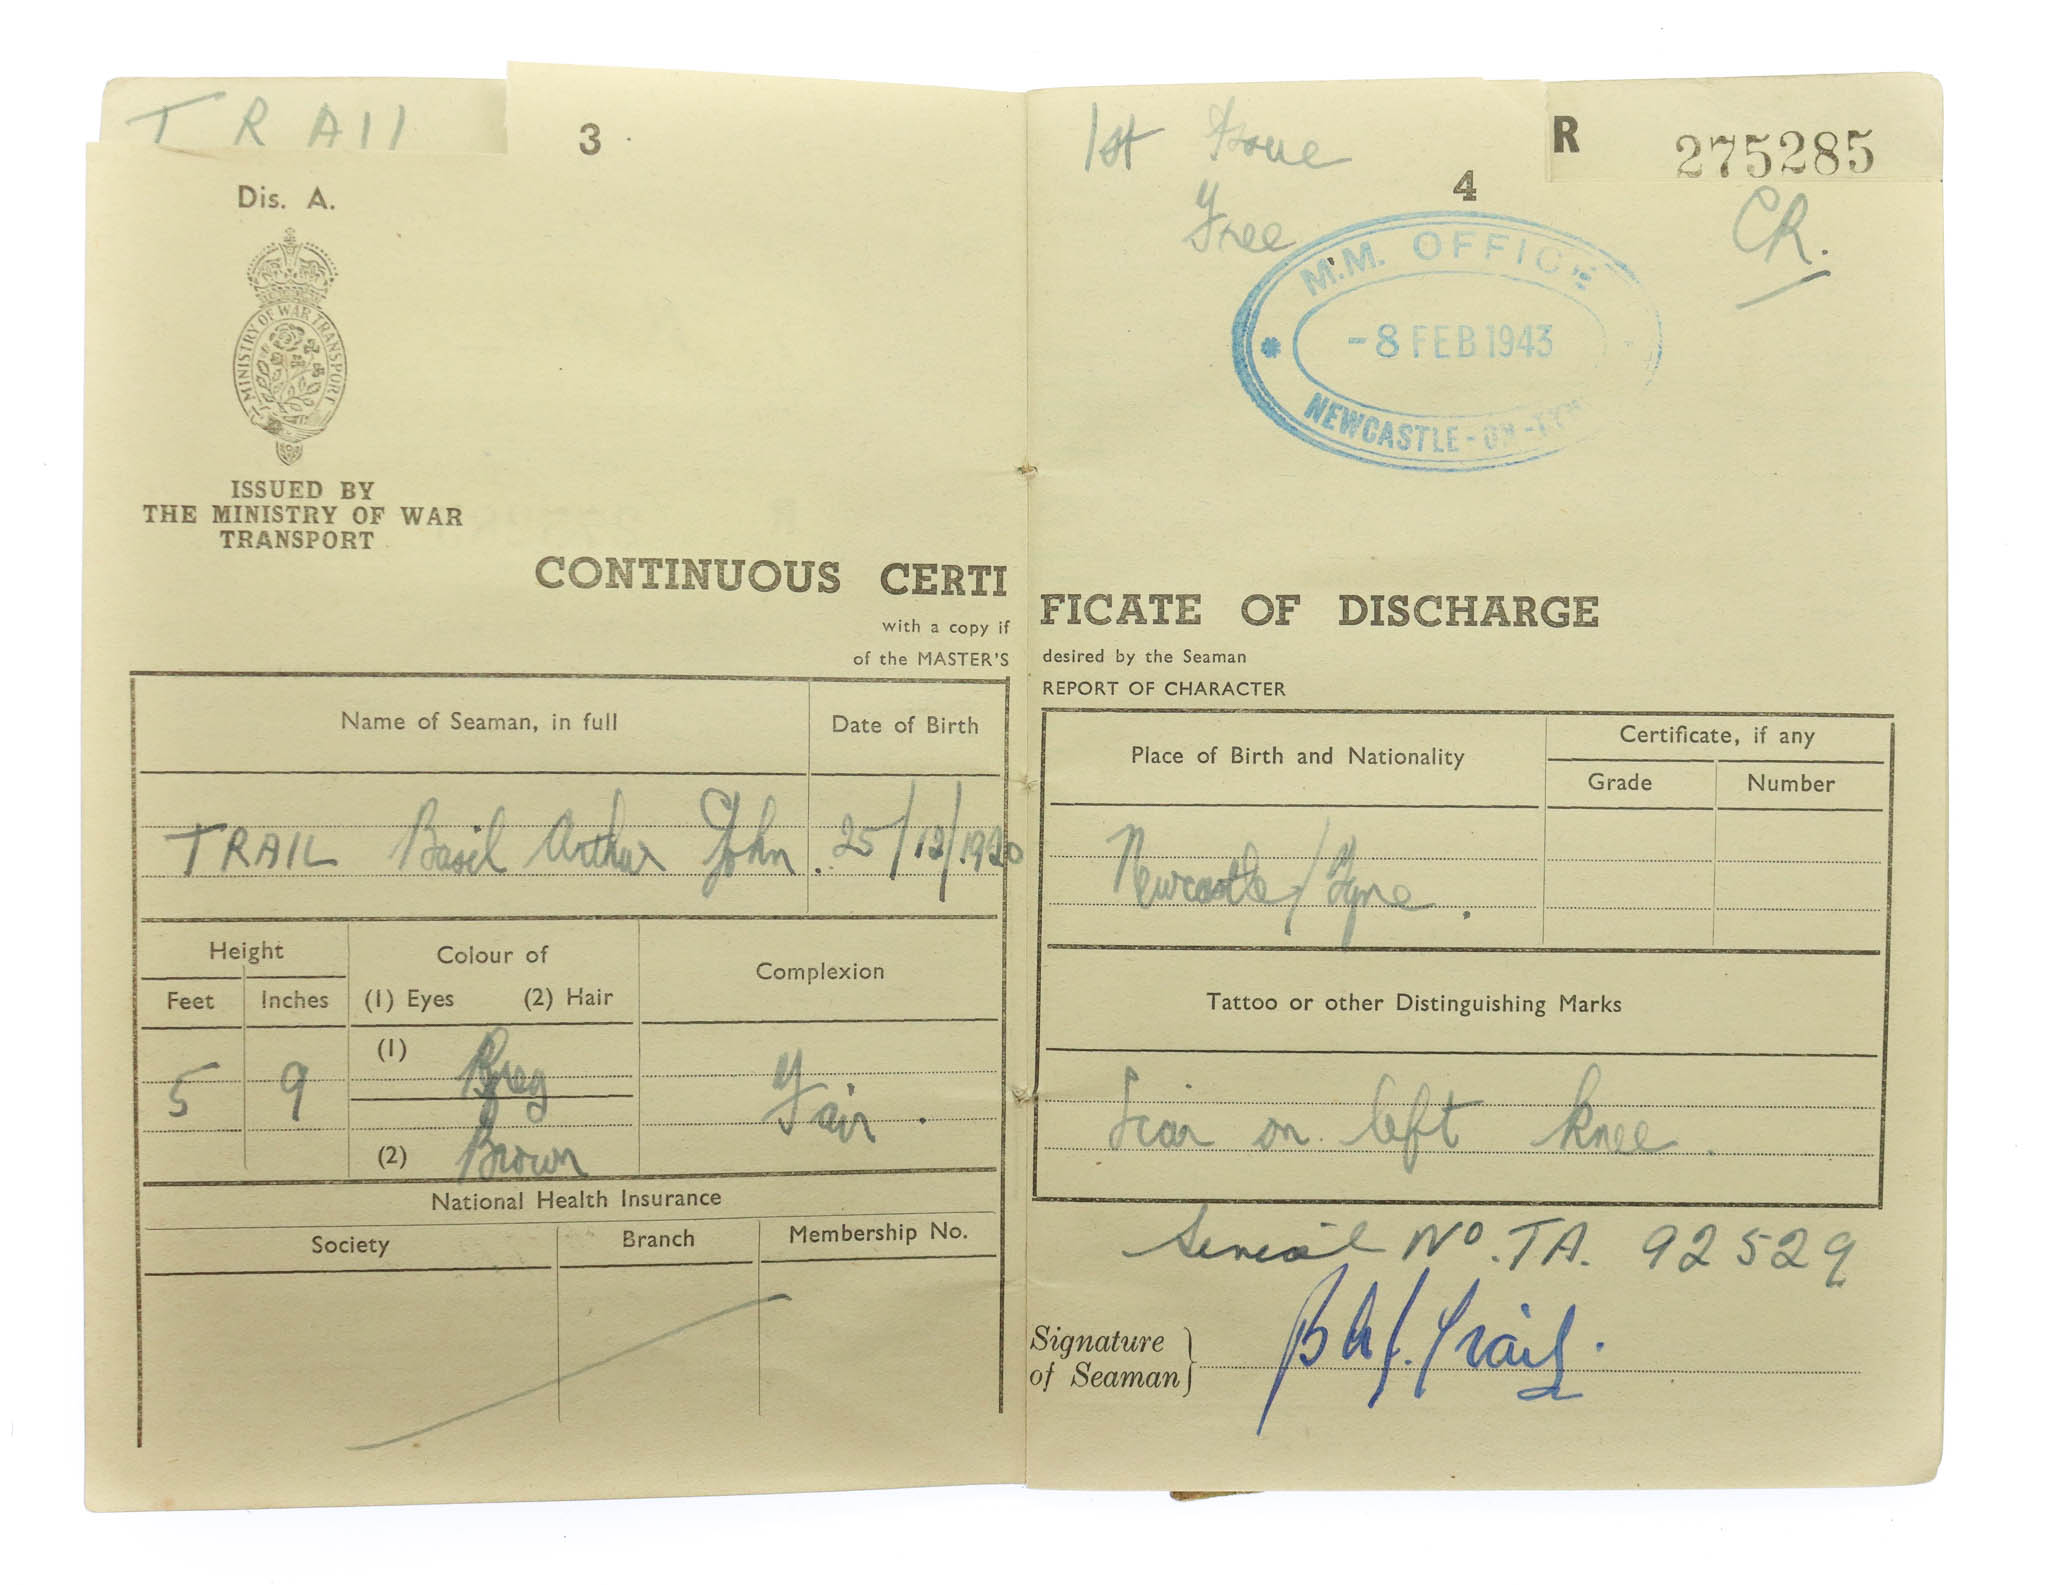 TRAIL
3
Dis. A.
MINISTRY OF WAR TRANSPORT
ISSUED BY
THE MINISTRY OF WAR
TRANSPORT
CONTINUOUS CERTI
with a copy if
of the MASTER'S
Name of Seaman, in full
Date of Birth
TRAIL Basil Arthur John. 25/12/1920
Height
Feet
Inches
Colour of
(1) Eyes (2) Hair
Complexion
5
9
(1) Grey
(2) Brown
Fair.
National Health Insurance
Society
Branch
Membership No.
1st Issue
Free
4
R 275285
CR.
M.M. OFFICE
-8 FEB 1943
NEWCASTLE-ON-TYNE
FICATE OF DISCHARGE
desired by the Seaman
REPORT OF CHARACTER
Place of Birth and Nationality
Certificate, if any
Grade
Number
Newcastle/Tyne.
Tattoo or other Distinguishing Marks
Scar on left knee.
Serial No. TA. 92529
Signature
of Seaman
B A J. Trail.